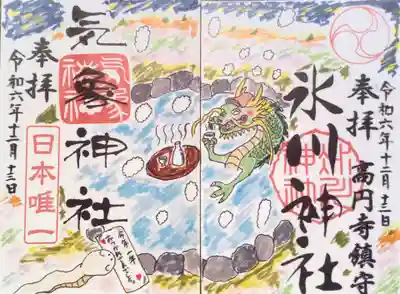 令和六年十二月十三日
奉拝
高円寺鎮守
氷川神社
気象神社
奉拝
令和六年十二月十三日
日本唯一